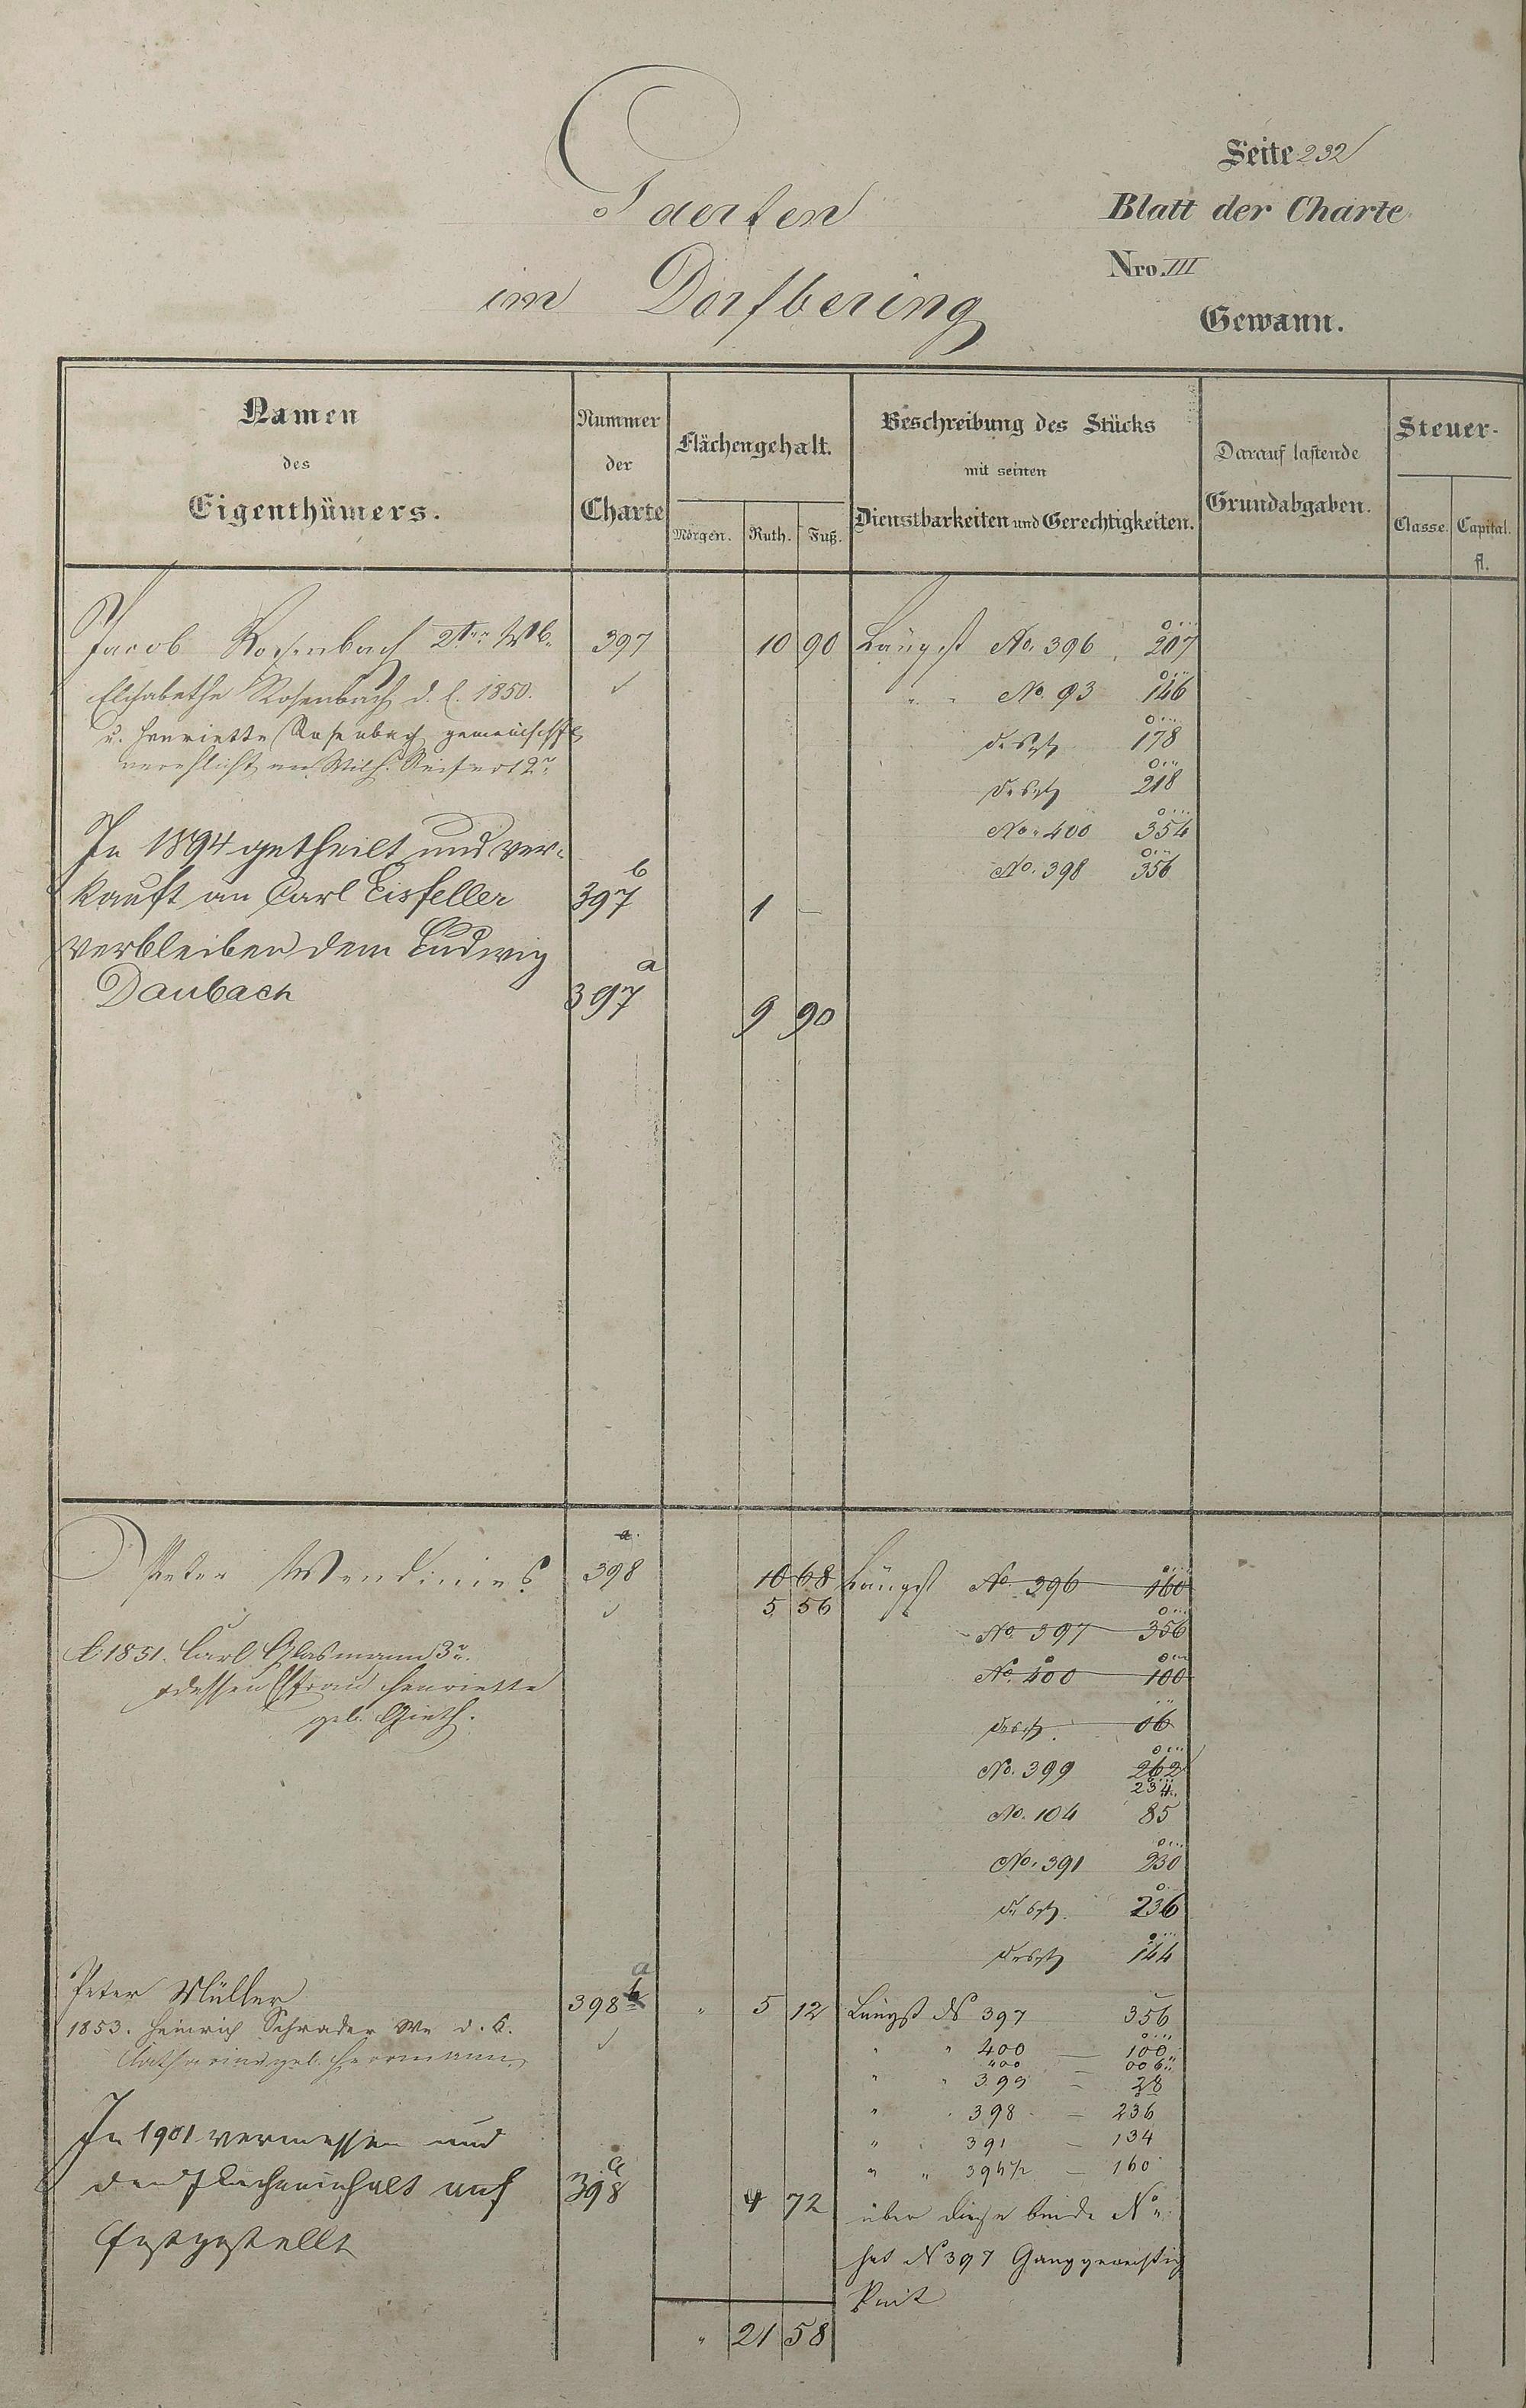 Seite 232
Gaerten
Blatt der Charte
Nro. III
im Dorfbering
Gewann.
Namen des Eigenthümers.
Nummer der Charte
Flächengehalt.
Morgen. Ruth. Fuß.
Beschreibung des Stücks
mit seinen
Dienstbarkeiten und Gerechtigkeiten.
Darauf lastende
Grundabgaben.
Steuer-
Classe. Capital.
fl.
Jacob Rosenbach 2ter Wb. 397 10 90 Längst No. 396 207
Elisabethe Rosenbach d. l. 1850. No. 93 146
u. Henriette Rosenbach gemeinschftl 178
verehlicht an Wilh. 218
No. 400 354
In 1894 getheilt und ver-
No. 398 356
kauft an Carl Eisfeller 397 b 1 —
verbleiben dem Ludwig
Daubach 397 a 9 90
Peter 398 a. 10 68 Längst No. 396 160
5 56
No. 397 356
1851. Carl Glasmann 3r.
No. 400 100
dessen Frau Henriette
geb. Gieth. 06
No. 399 262
234
No. 104 85
No. 391 230
236
144
Peter Müller 398 b a " 5 12 Längst No 397 356
1853. Heinrich Schrader We d. l. " " 400 — 100
Catharine geb. Herrmann. 400 006
" " 399 — 28
" " 398 — 236
In 1901 vermessen und " " 391 — 134
" " 394 1/2 — 160
den Flächeninhalt auf 398 a 4 72 über diese beide No
festgestellt hat No 397 Ganggerechtig
keit
" 21 58